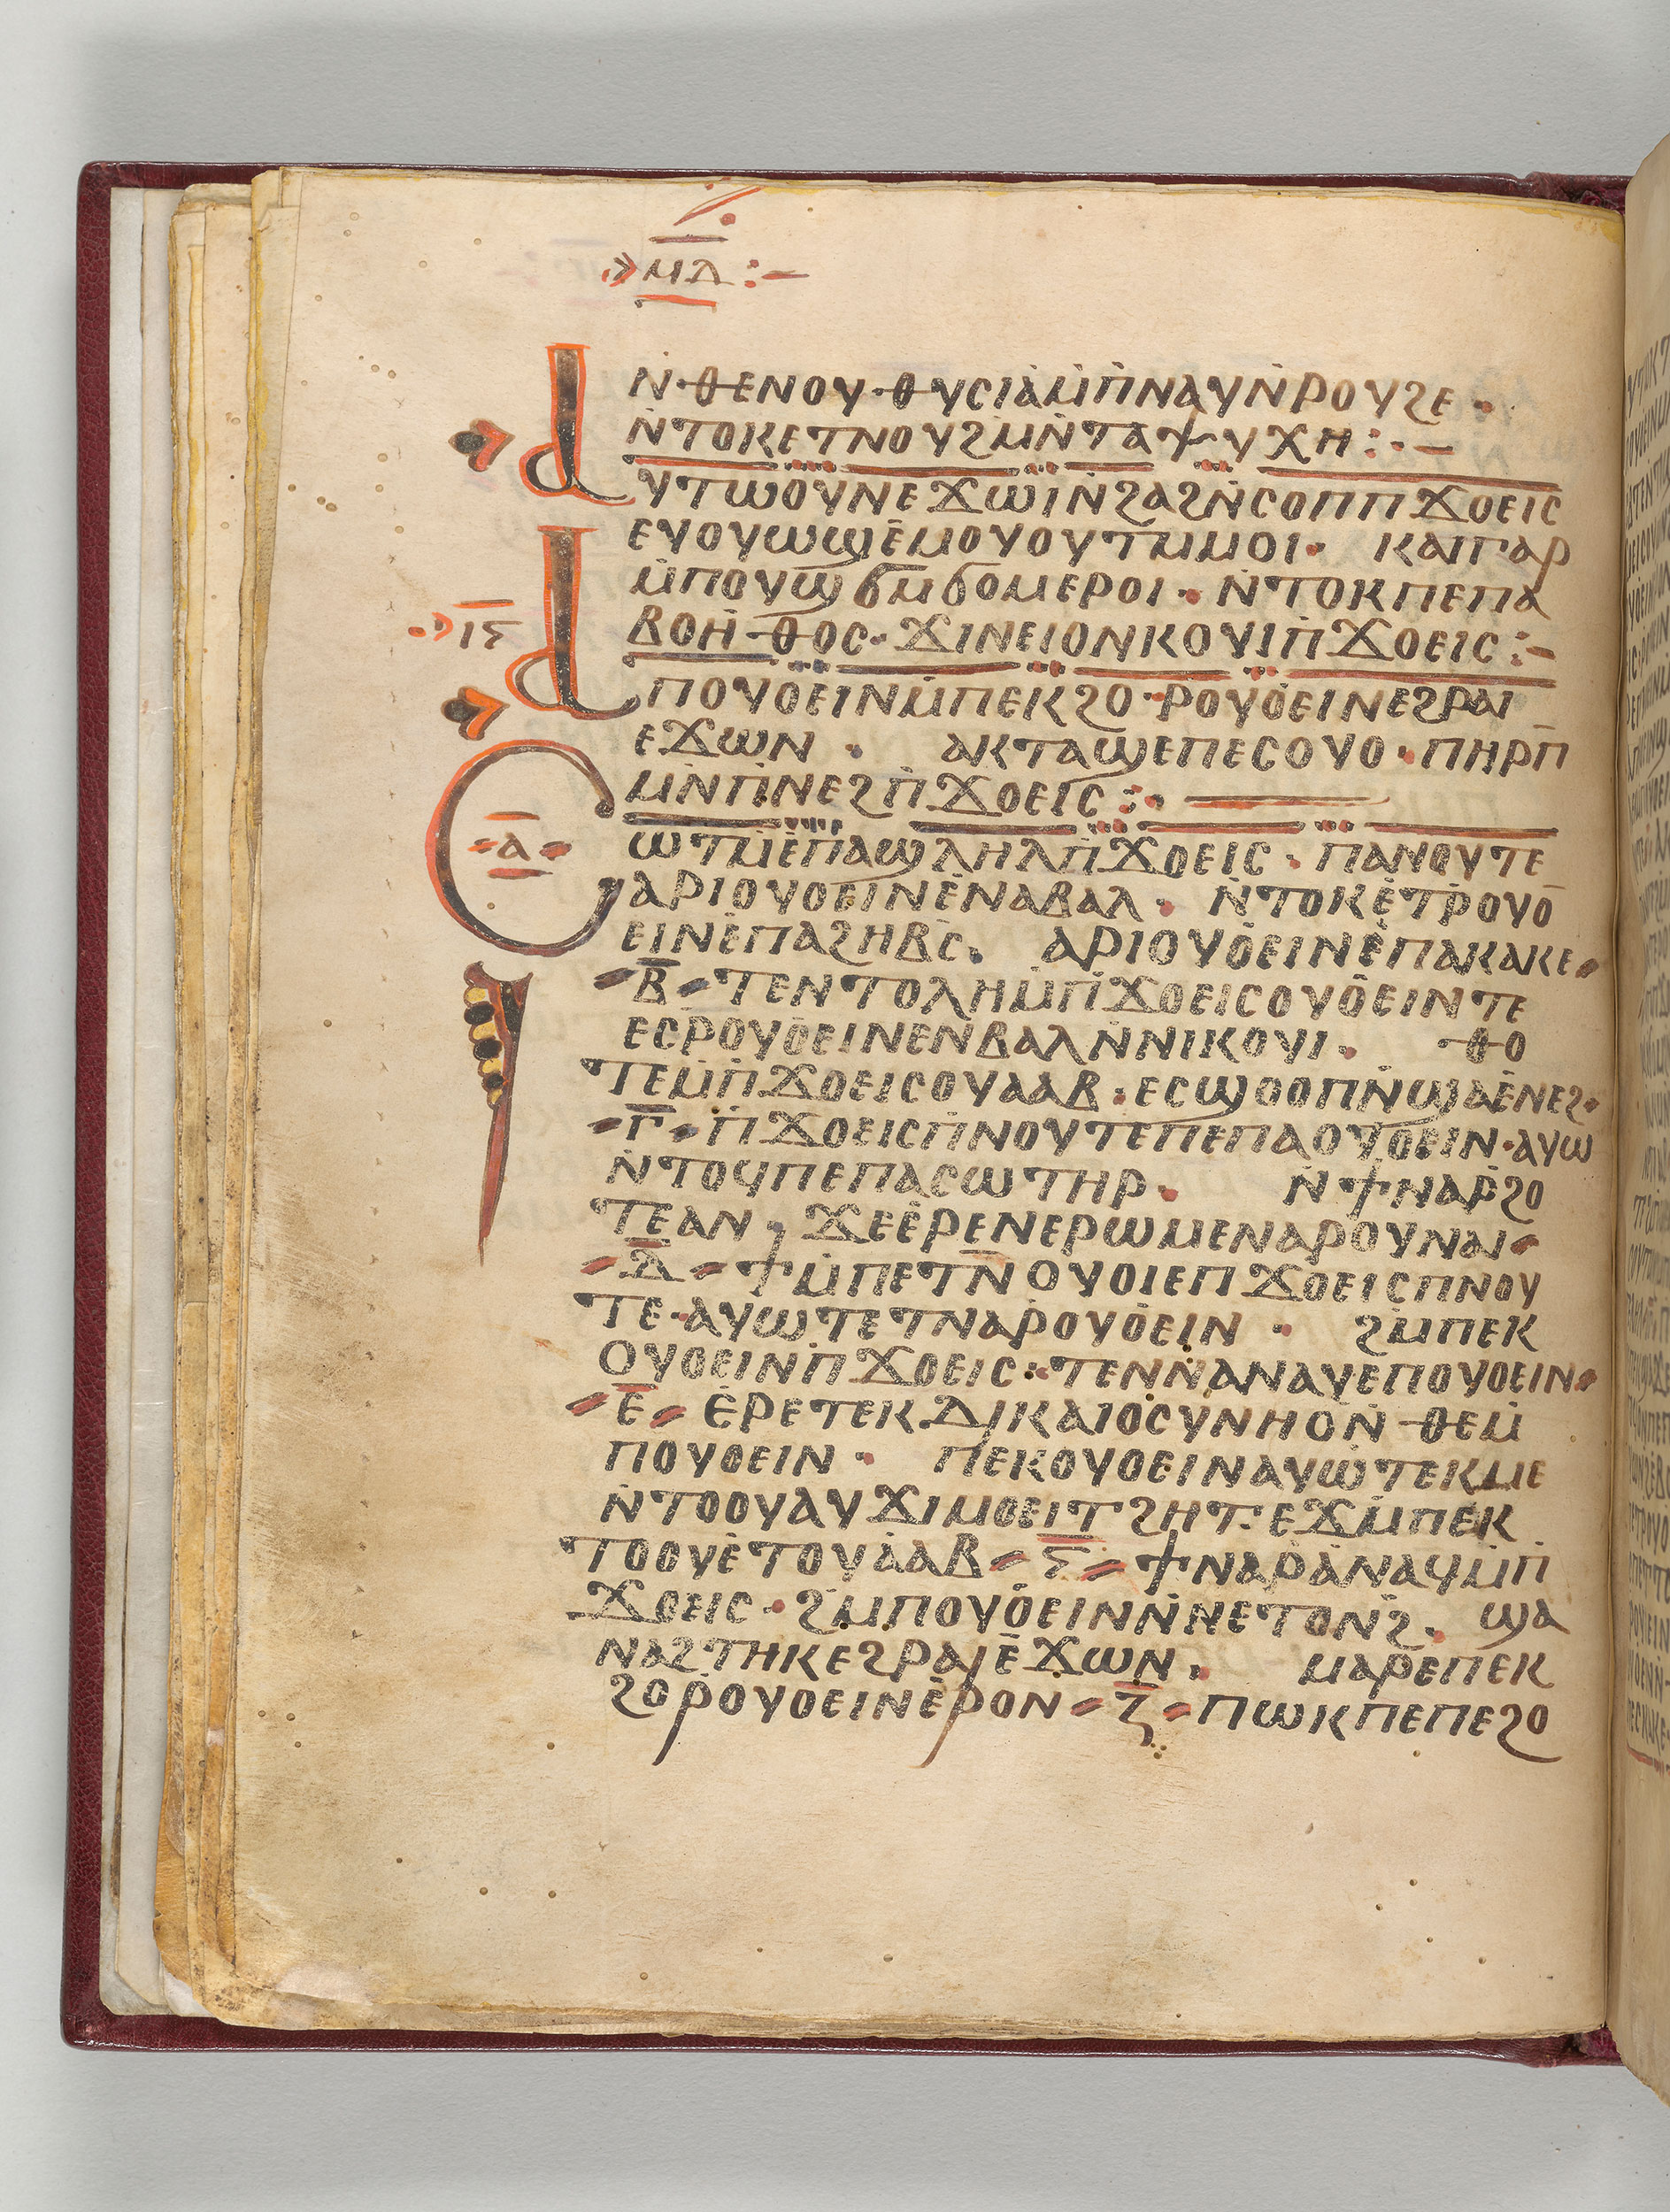 ⲙⲇ
ⲛ̀ⲑⲉⲛⲟⲩⲑⲩⲥⲓⲁ̀ⲙ̀ⲡ̀ⲛⲁⲩⲛ̀ⲣⲟⲩϩⲉ·
ⲛ̀ⲧⲟⲕⲉⲧⲛⲟⲩϩⲙ̀ⲛ̀ⲧⲁⲯⲩⲭⲏ:·—
ⲁⲩⲧⲱⲟⲩⲛⲉϫⲱⲓ̀ⲛ̀ϩⲁϩⲛ̀ⲥⲟⲡⲡϫⲟⲉⲓⲥ
ⲉⲩⲟⲩⲱϣⲉ̀ⲙⲟⲩⲟⲩⲧⲙ̀ⲙⲟⲓ· ⲕⲁⲓⲅⲁⲣ
ⲙ̀ⲡⲟⲩϣϭⲙϭⲟⲙⲉⲣⲟⲓ· ⲛ̀ⲧⲟⲕⲡⲉⲡⲁ
ⲓⲋ ⲃⲟⲏ̀ⲑⲟⲥ· ϫⲓⲛⲉⲓⲟⲛⲕⲟⲩⲓ̈ⲡ̀ϫⲟⲉⲓⲥ:—
ⲁⲡⲟⲩⲟ̀ⲉⲓⲛⲙ̀ⲡⲉⲕϩⲟ·ⲣⲟⲩⲟ̀ⲉⲓⲛⲉϩⲣⲁⲓ
ⲉϫⲱⲛ· ⲁⲕⲧⲁϣⲉⲡⲉⲥⲟⲩⲟ·ⲡⲏⲣⲡ̅
ⲙ̀ⲛ̀ⲡ̀ⲛⲉϩⲡ̀ϫⲟⲉⲓⲥ:·
ⲁ̅ ⲥⲱⲧⲙ̀ⲉ̀ⲡⲁϣⲗⲏⲗⲡ̀ϫⲟⲉⲓⲥ· ⲡⲁⲛⲟⲩⲧⲉ
ⲁⲣⲓⲟⲩⲟⲉⲓⲛⲉ̀ⲛⲁⲃⲁⲗ· ⲛ̀ⲧⲟⲕⲉ̀ⲧⲣ̀ⲟⲩⲟ̅
ⲉⲓⲛⲉ̀ⲡⲁϩⲏⲃ̀ⲥ̀· ⲁⲣⲓⲟⲩⲟ̀ⲉⲓⲛⲉ̀ⲡⲁⲕⲁⲕⲉ
ⲃ̅ ⲧⲉⲛⲧⲟⲗⲏⲙ̀ⲡ̀ϫⲟⲉⲓⲥⲟⲩⲟ̀ⲉⲓⲛⲧⲉ
ⲉⲥⲣ̀ⲟⲩⲟ̀ⲉⲓⲛⲉⲛ̀ⲃⲁⲗⲛ̀ⲛⲓⲕⲟⲩⲓ· ⲑⲟ
ⲧⲉⲙ̀ⲡ̀ϫⲟⲉⲓⲥⲟⲩⲁⲁⲃ·ⲉⲥϣⲟⲟⲡⲛ̀ϣⲁⲉ̀ⲛⲉϩ·
ⲅ̅ ⲡ̀ϫⲟⲉⲓⲥⲡ̀ⲛⲟⲩⲧⲉⲡⲉⲡⲁⲟⲩⲟ̀ⲉⲓⲛ·ⲁⲩⲱ
ⲛ̀ⲧⲟϥⲡⲉⲡⲁⲥⲱⲧⲏⲣ· ⲛ̀ϯⲛⲁⲣ̀ϩⲟ
ⲧⲉⲁⲛ· ϫⲉⲉ̀ⲣⲉⲛⲉⲣⲱⲙⲉⲛⲁⲣⲟⲩⲛⲁⲓ
ⲇ̅ ϯⲙ̀ⲡⲉⲧⲛ̅ⲟⲩⲟⲓⲉⲡϫⲟⲉⲓⲥⲡⲛⲟⲩ
ⲧⲉ·ⲁⲩⲱⲧⲉⲧⲛⲁⲣ̀ⲟⲩⲟ̀ⲉⲓⲛ· ϩⲙ̀ⲡⲉⲕ
ⲟⲩⲟⲉⲓⲛⲡ̀ϫⲟⲉⲓⲥ:ⲧⲉⲛⲛ̀ⲁⲛⲁⲩⲉⲡⲟⲩⲟⲉⲓⲛ·
ⲉ̅ ⲉ̀ⲣⲉⲧⲉⲕⲇⲓⲕⲁⲓⲟⲥⲩⲛⲏⲟ̀ⲛ̀ⲑⲉⲙ̀
ⲡⲟⲩⲟⲉⲓⲛ· ⲡⲉⲕⲟⲩⲟⲉⲓⲛⲁⲩⲱⲧⲉⲕⲙⲉ
ⲛ̀ⲧⲟⲟⲩⲁⲩϫⲓⲙⲟⲉⲓⲧϩⲏⲧ·ⲉϫⲙ̀ⲡⲉⲕ
ⲧⲟⲟⲩⲉ̀ⲧⲟⲩⲁ̀ⲁⲃ ⲋ̅ ϯⲛⲁⲣ̀ⲁ̀ⲛⲁϥⲙ̀ⲡ̀
ϫⲟⲉⲓⲥ·ϩⲙ̀ⲡⲟⲩⲟ̀ⲉⲓⲛⲛ̀ⲛⲉⲧⲟⲛϩ̀· ϣⲁ
ⲛⲁϩⲧⲏⲕⲉϩⲣⲁⲓⲉ̀ϫⲱⲛ· ⲙⲁⲣⲉⲡⲉⲕ
ϩⲟⲣ̀ⲟⲩⲟⲉⲓⲛⲉ̀ⲣⲟⲛ ⲍ̅ ⲡⲱⲕⲡⲉⲡⲉϩⲟ